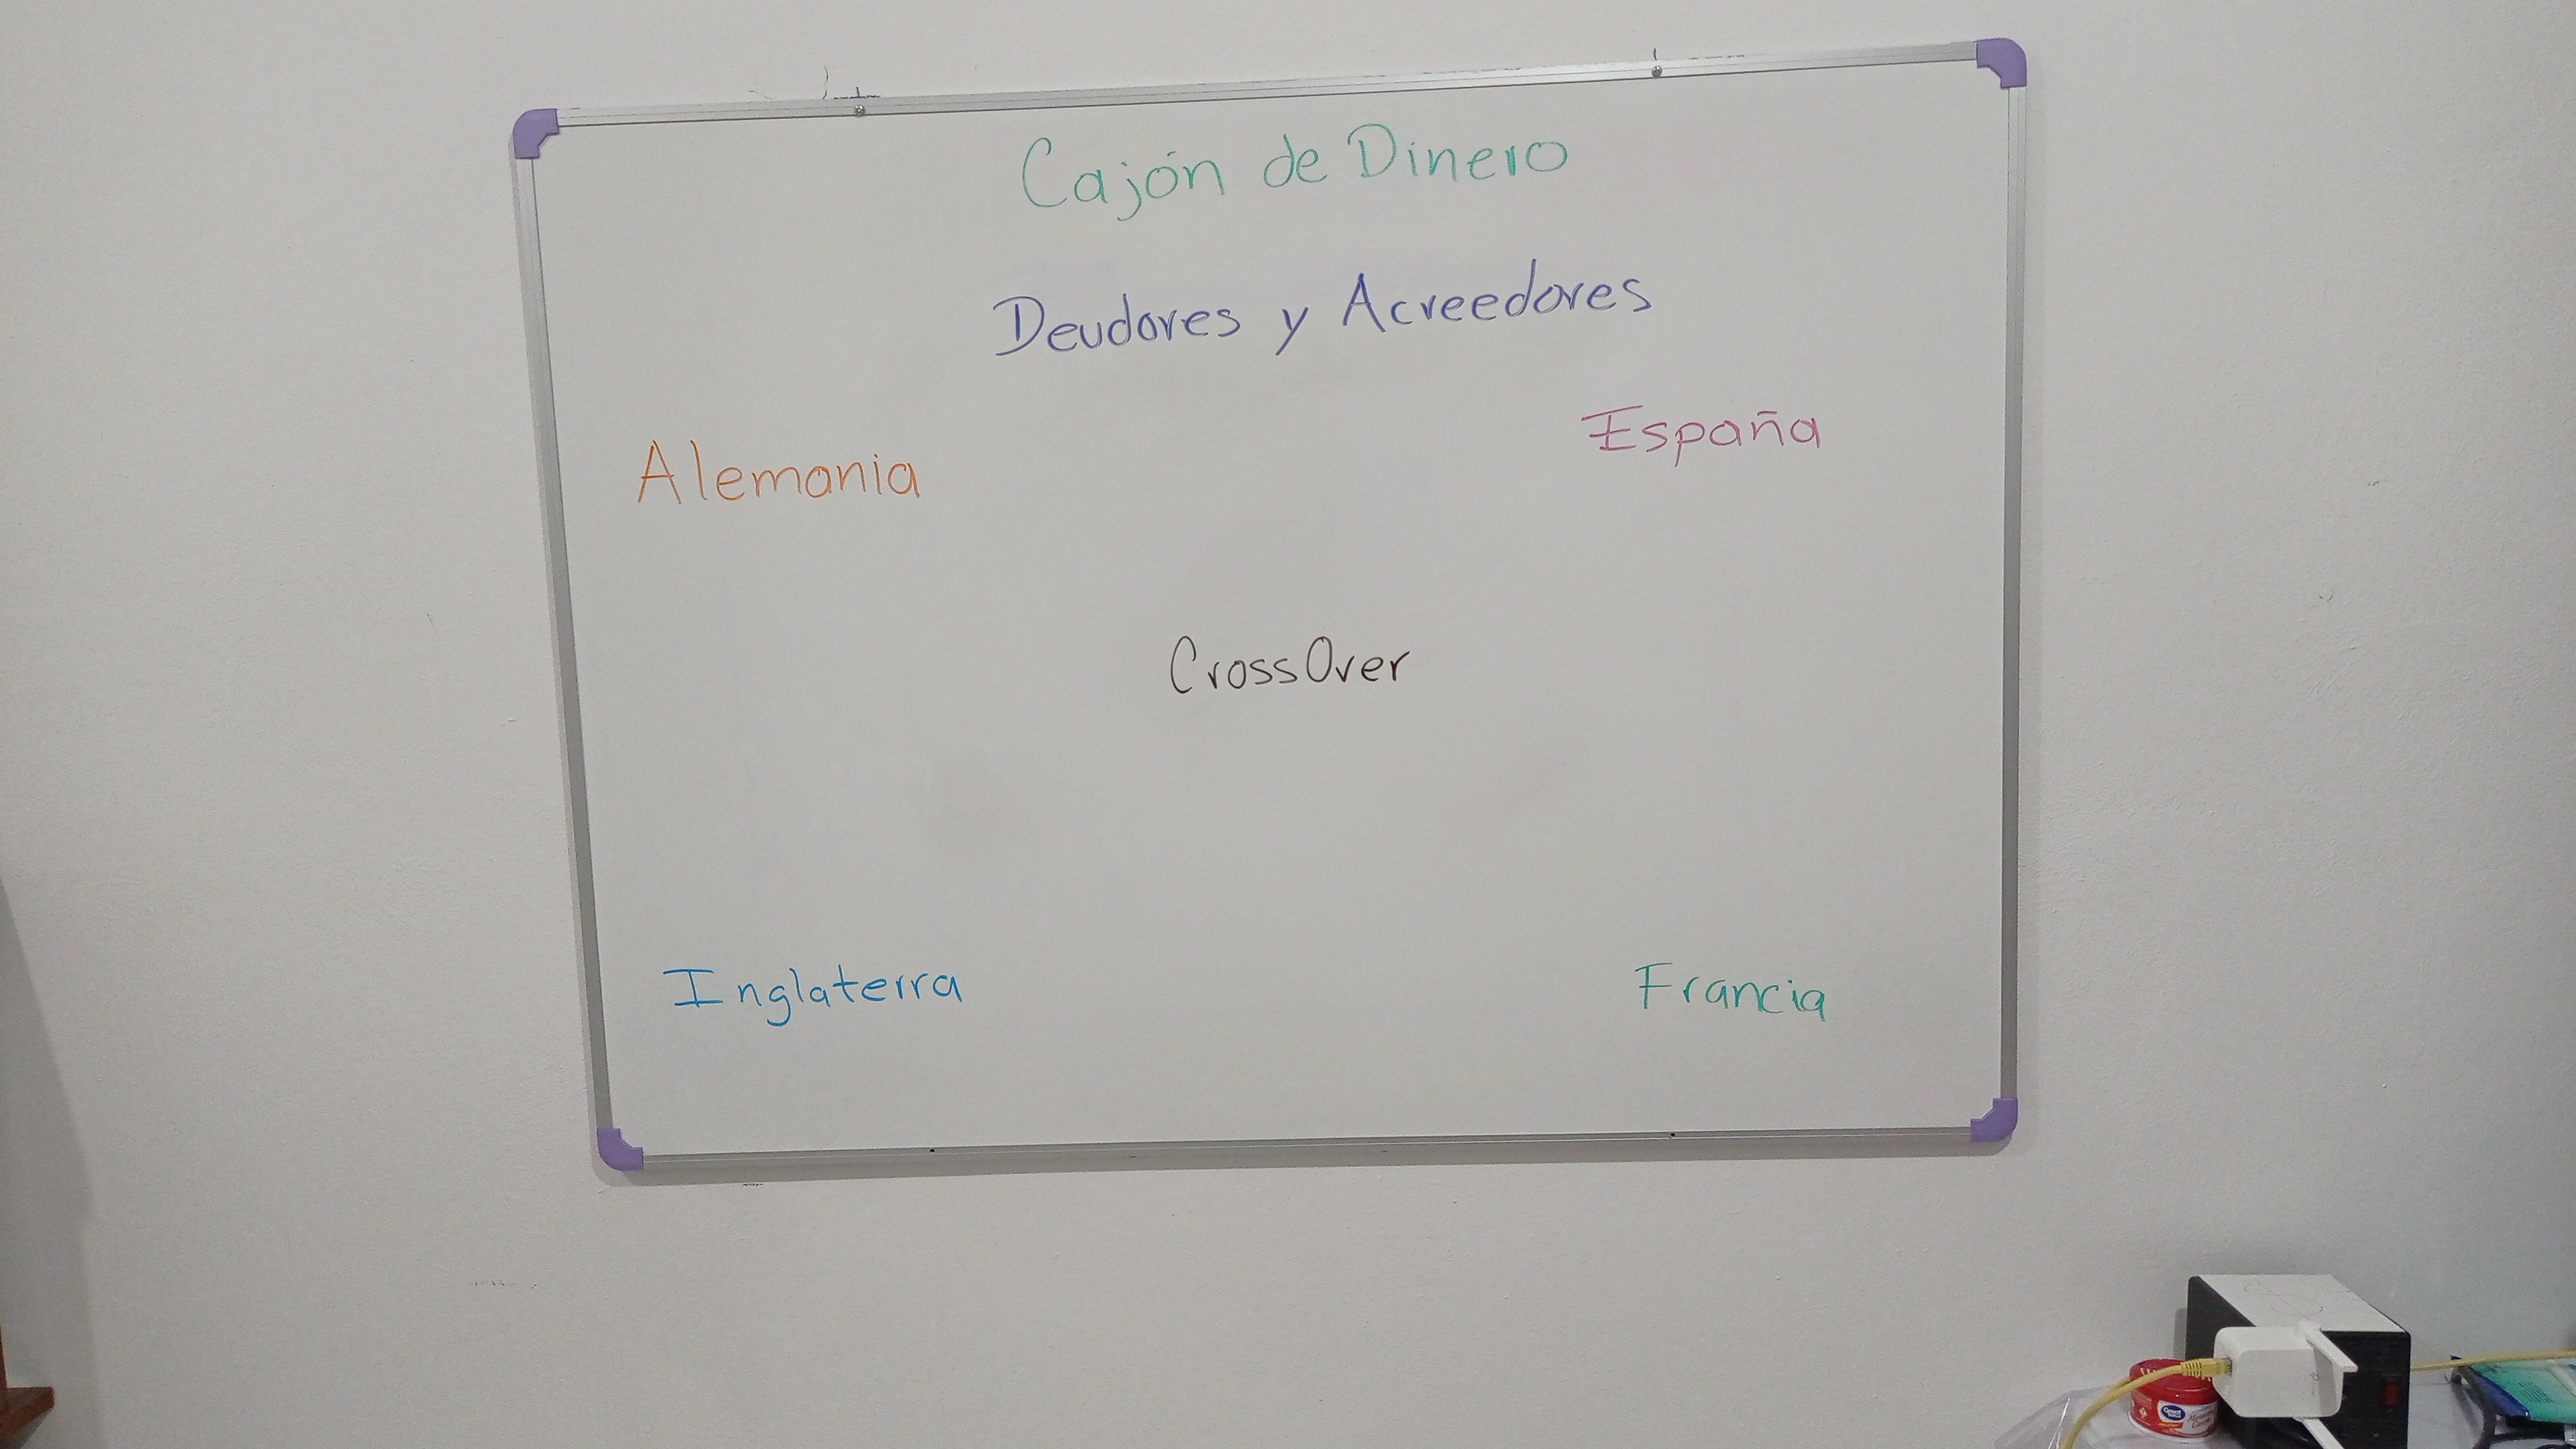 Cajón de Dinero
Deudores y Acreedores
Alemania
España
CrossOver
Inglaterra
Francia
Great